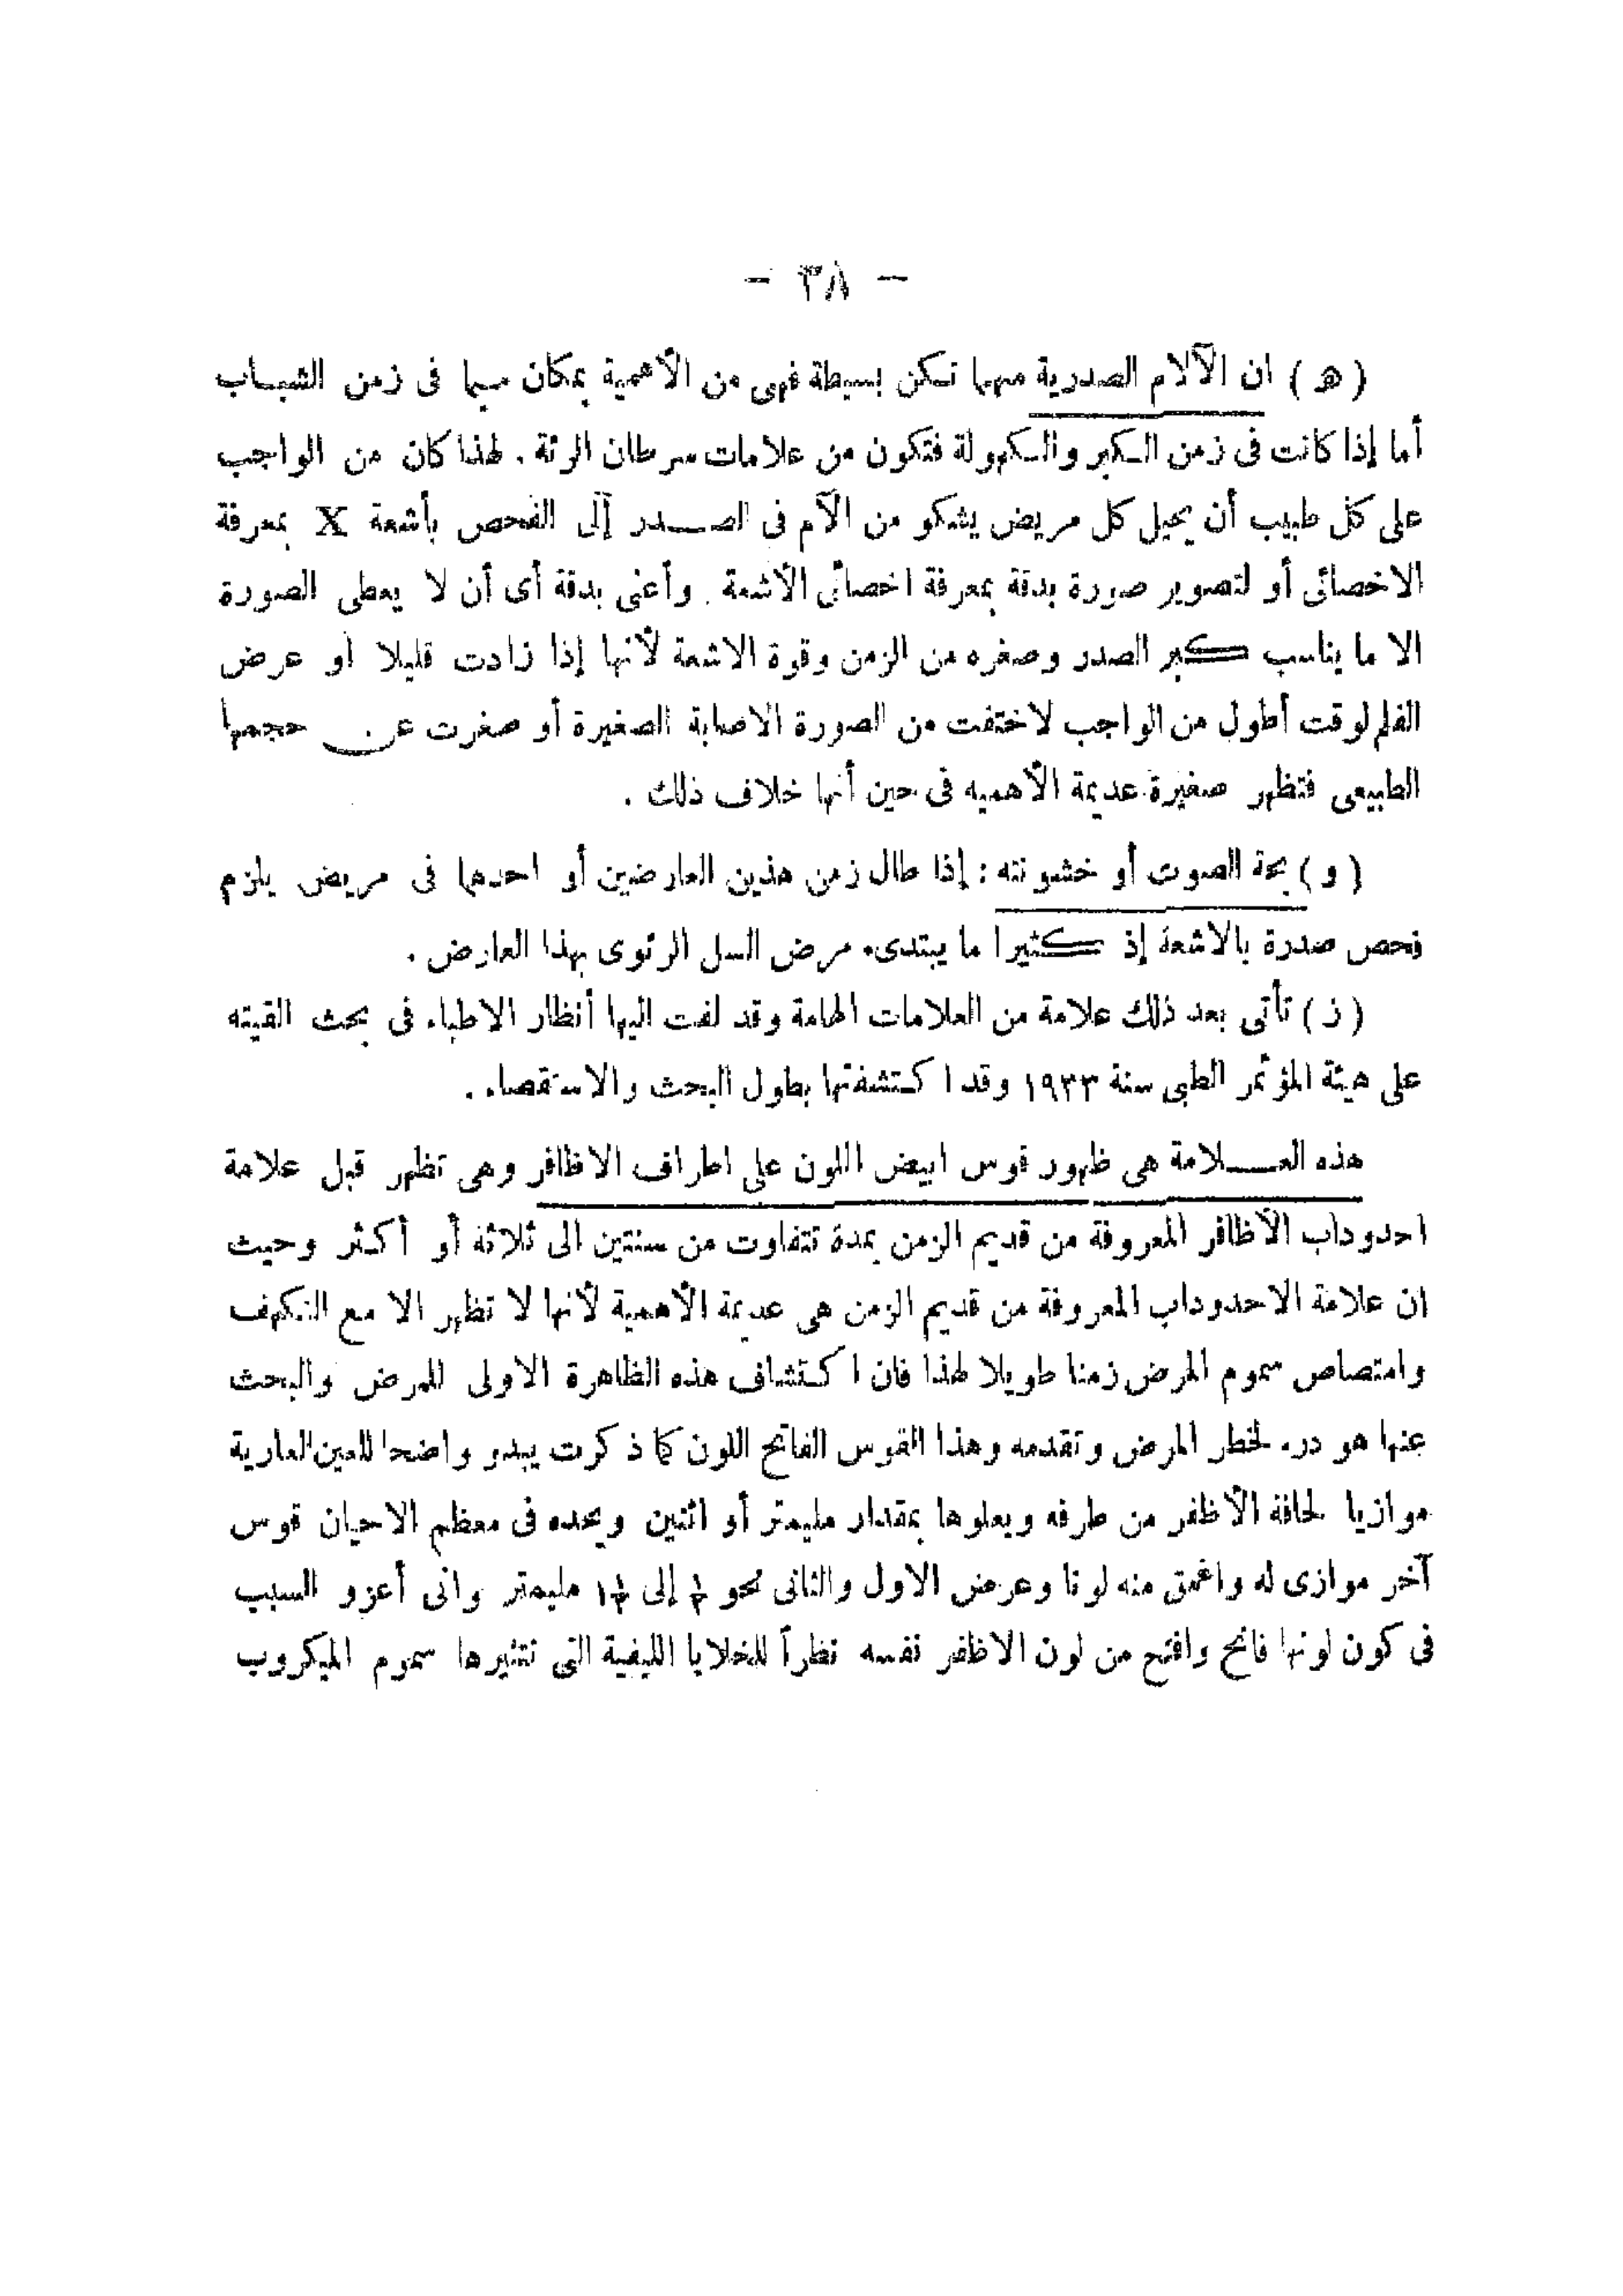 - ٣٨ -
( ه ) ان الآلام الصدرية مهما تكن بسيطة فهى من الأهمية بمكان سيما فى زمن الشباب
أما إذا كانت فى زمن الكبر والكهولة فتكون من علامات سرطان الرئة . لهذا كان من الواجب
على كل طبيب أن يحيل كل مريض يشكو من الآم فى الصدر إلى الفحص بأشعة X بمعرفة
الاخصائى أو لتصوير صورة بدقة بمعرفة اخصائى الأشعة . وأعنى بدقة أى أن لا يعطى الصورة
الا ما يناسب كبر الصدر وصغره من الزمن وقوة الاشعة لأنها إذا زادت قليلا أو عرض
الفلم لوقت أطول من الواجب لاختفت من الصورة الاصابة الصغيرة أو صغرت عن حجمها
الطبيعى فتظهر صغيرة عديمة الأهميه فى حين أنها خلاف ذلك .
( و ) بحة الصوت أو خشونته : إذا طال زمن هذين العارضين أو احدهما فى مريض يلزم
فحص صدرة بالاشعة إذ كثيرا ما يبتدىء مرض السل الرئوى بهذا العارض .
( ز ) تأتى بعد ذلك علامة من العلامات الهامة وقد لفت اليها أنظار الاطباء فى بحث القيته
على هيئة المؤتمر الطبى سنة ١٩٣٣ وقد اكتشفتها بطول البحث والاستقصاء .
هذه العلامة هى ظهور قوس ابيض اللون على اطراف الاظافر وهى تظهر قبل علامة
احدوداب الأظافر المعروفة من قديم الزمن بمدة تتفاوت من سنتين الى ثلاثة أو أكثر وحيث
ان علامة الاحدوداب المعروفة من قديم الزمن هى عديمة الأهمية لأنها لا تظهر الا مع التكهف
وامتصاص سموم المرض زمنا طويلا لهذا فان اكتشاف هذه الظاهرة الاولى للمرض والبحث
عنها هو درء لخطر المرض وتقدمه وهذا القوس الفاتح اللون كما ذكرت يبدو واضحا للعين العارية
موازيا لحافة الأظفر من طرفه ويعلوها بمقدار مليمتر أو اثنين ويحده فى معظم الاحيان قوس
آخر موازى له واغمق منه لونا وعرض الاول والثانى نحو إلى مليمتر وانى أعزو السبب
فى كون لونها فاتح وافتح من لون الاظفر نفسه نظراً للخلايا الليفية التى تثيرها سموم الميكروب